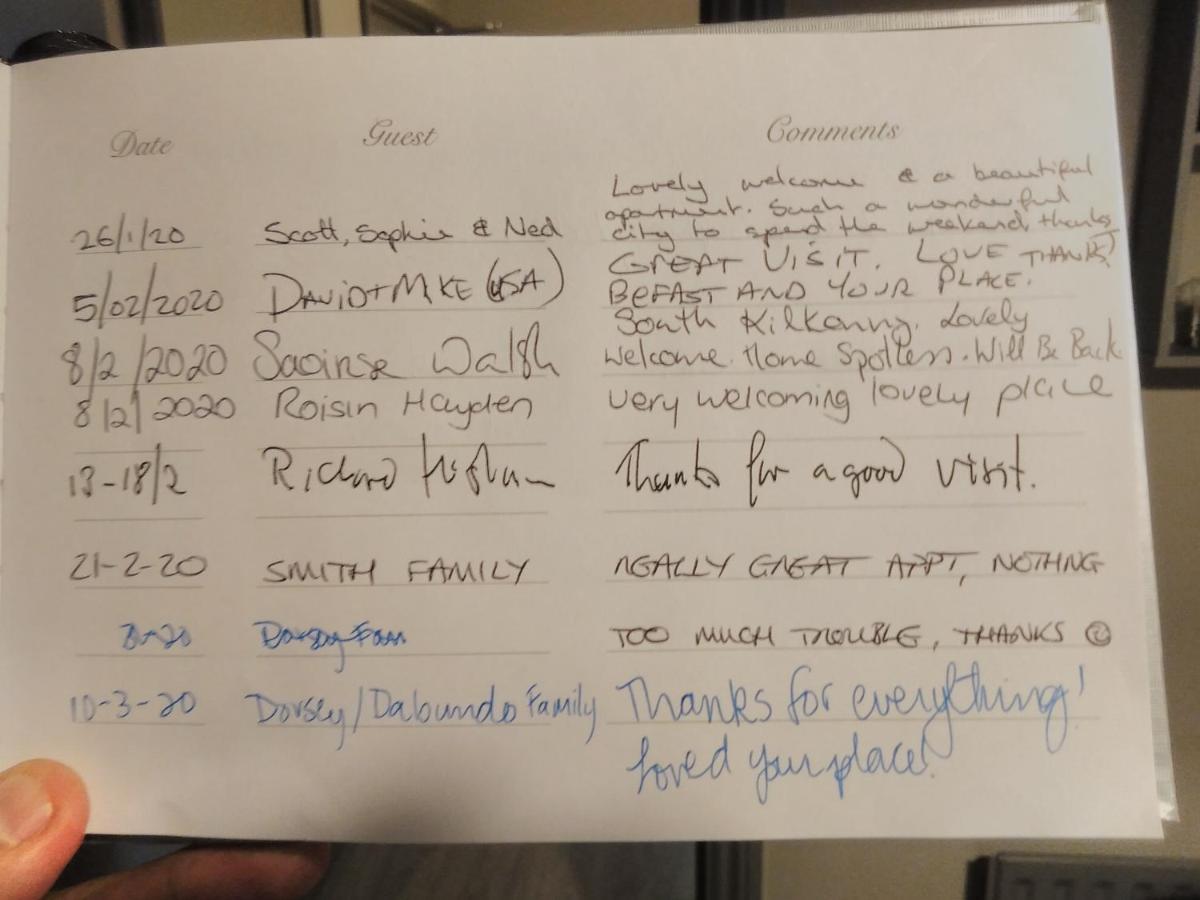 Date Guest Comments
Lovely welcome & a beautiful
apartment. Such a wonderful
26/1/20 Scott, Sophie & Ned city to spend the weekend, thanks
GREAT VISIT. LOVE THANKS!
5/02/2020 DAVID + MIKE (USA) BEFAST AND YOUR PLACE.
South Kilkenny. Lovely
8/2/2020 Saoirse Walsh Welcome. Home Spotless. Will Be Back
8/2/2020 Roisin Hayden very welcoming lovely place
13-18/2 Richard Thanks for a good visit.
21-2-20 SMITH FAMILY REALLY GREAT APPT, NOTHING
TOO MUCH TROUBLE, THANKS ☺
10-3-20 Dorsey/Dabundo Family Thanks for everything!
Loved your place!